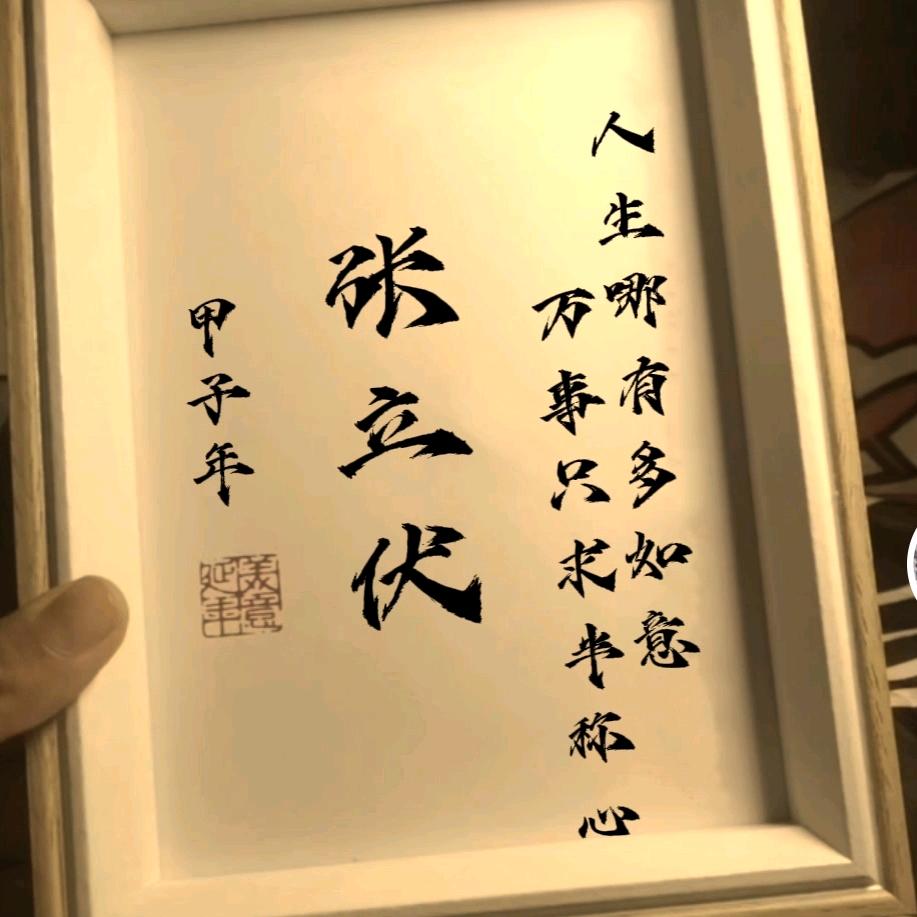 人生哪有多如意
万事只求半称心
张立伏
甲子年
美意延年